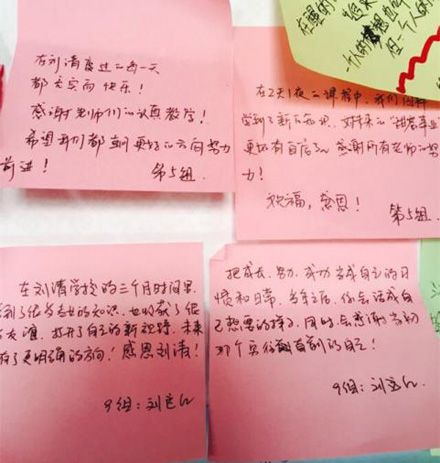 在刘清度过的每一天
都充实而快乐！
感谢老师们的认真教学！
希望我们都朝更好的方向努力
前进！
第5组
在2天1夜的课程中，我们
学到了新的知识，对未来的
更加有自信了。感谢所有老师的努
力！
祝福，感恩！
第5组
在刘清学校的三个月时间里
到了很多专业的知识，也收获了很
友谊，打开了自己的新视野，未来
有了更明确的方向！感恩刘清！
9组：刘
把成长、努力、成功当成自己的习
惯和日常，多年之后，你会活成自
己想要的样子，同时会感谢当初
那个勇往直前的自己！
9组：刘
一个人的梦想
但一个人的